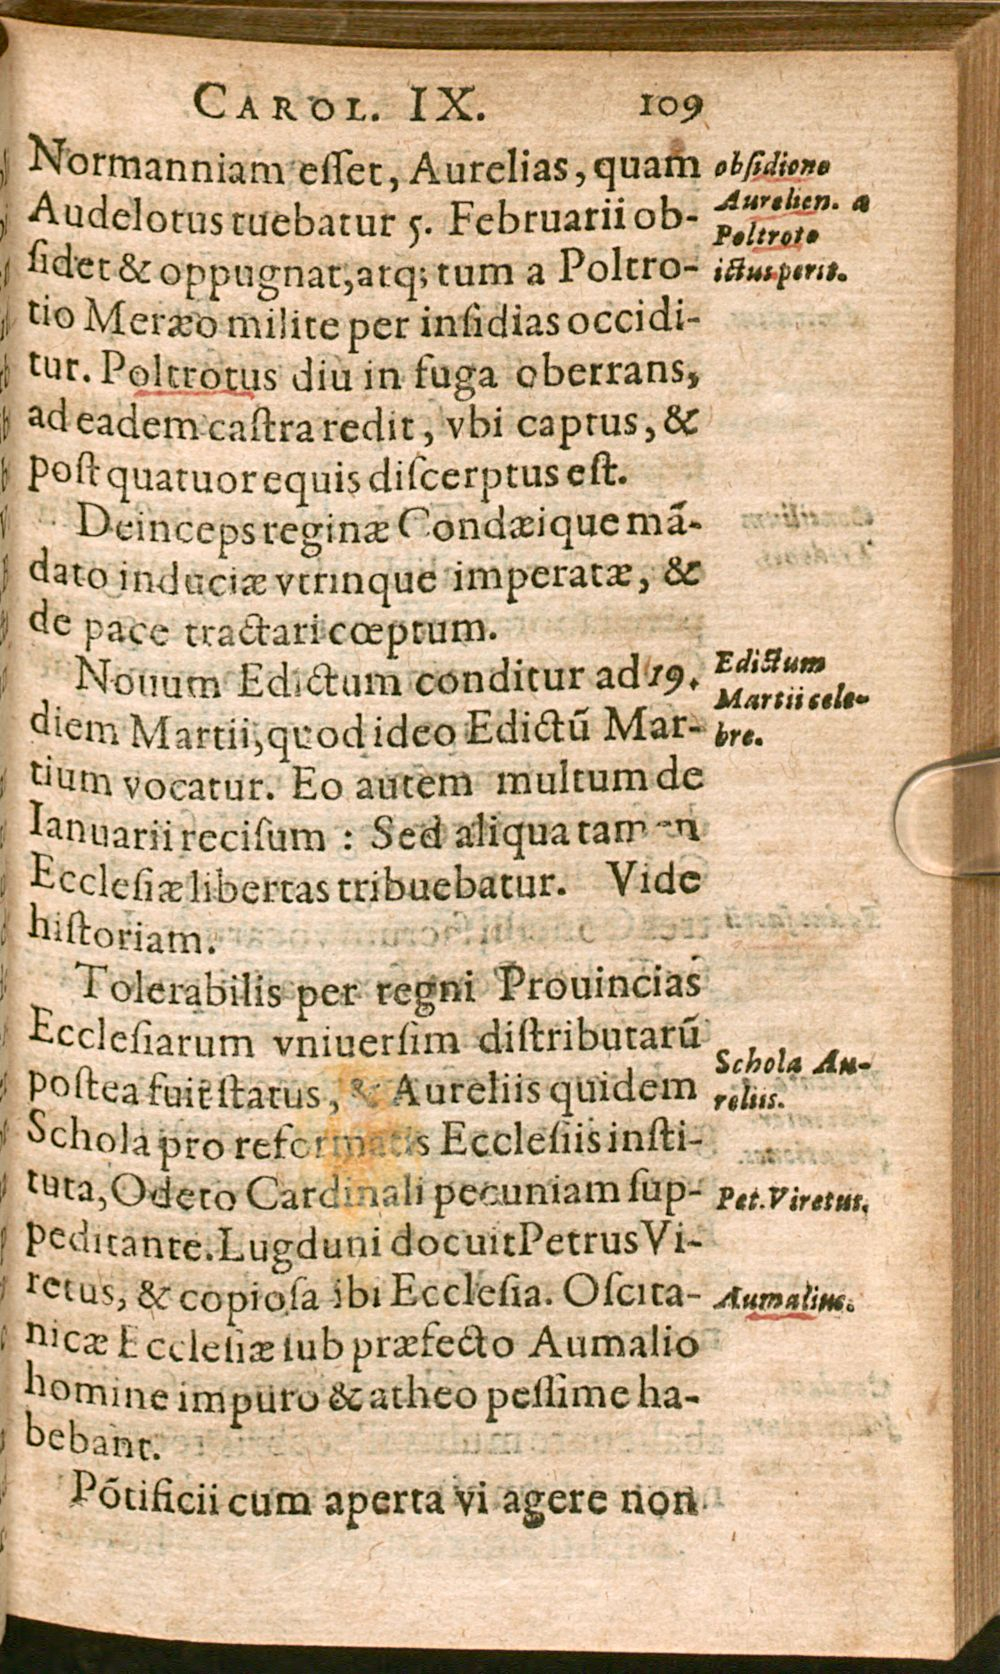 CAROL. IX. 109
Normanniam eſſet, Aurelias, quam
Audelotus tuebatur 5. Februarii ob-
ſidet & oppugnat, atq; tum a Poltro-
tio Meræo milite per inſidias occidi-
tur. Poltrotus diu in fuga oberrans,
ad eadem caſtra redit, vbi captus, &
poſt quatuor equis diſcerptus eſt.
Deinceps reginæ Condæique mā-
dato induciæ vtrinque imperatæ, &
de pace tractari cœptum.
Nouum Edictum conditur ad 19.
diem Martii, quod ideo Edictū Mar-
tium vocatur. Eo autem multum de
Ianuarii reciſum : Sed aliqua tamen
Eccleſiæ libertas tribuebatur. Vide
hiſtoriam.
Tolerabilis per regni Prouincias
Eccleſiarum vniuerſim diſtributarū
poſtea fuit ſtatus, & Aureliis quidem
Schola pro reformatis Eccleſiis inſti-
tuta, Odeto Cardinali pecuniam ſup-
peditante. Lugduni docuit Petrus Vi-
retus, & copioſa ibi Eccleſia. Oſcita-
nicæ Eccleſiæ ſub præfecto Aumalio
homine impuro & atheo peſſime ha-
bebant.
Pōtificii cum aperta vi agere non
obſidione
Aurelien. a
Poltroto
ictus perit.
Edictum
Martii cele-
bre.
Schola Au-
reliis.
Pet. Viretus.
Aumalius.